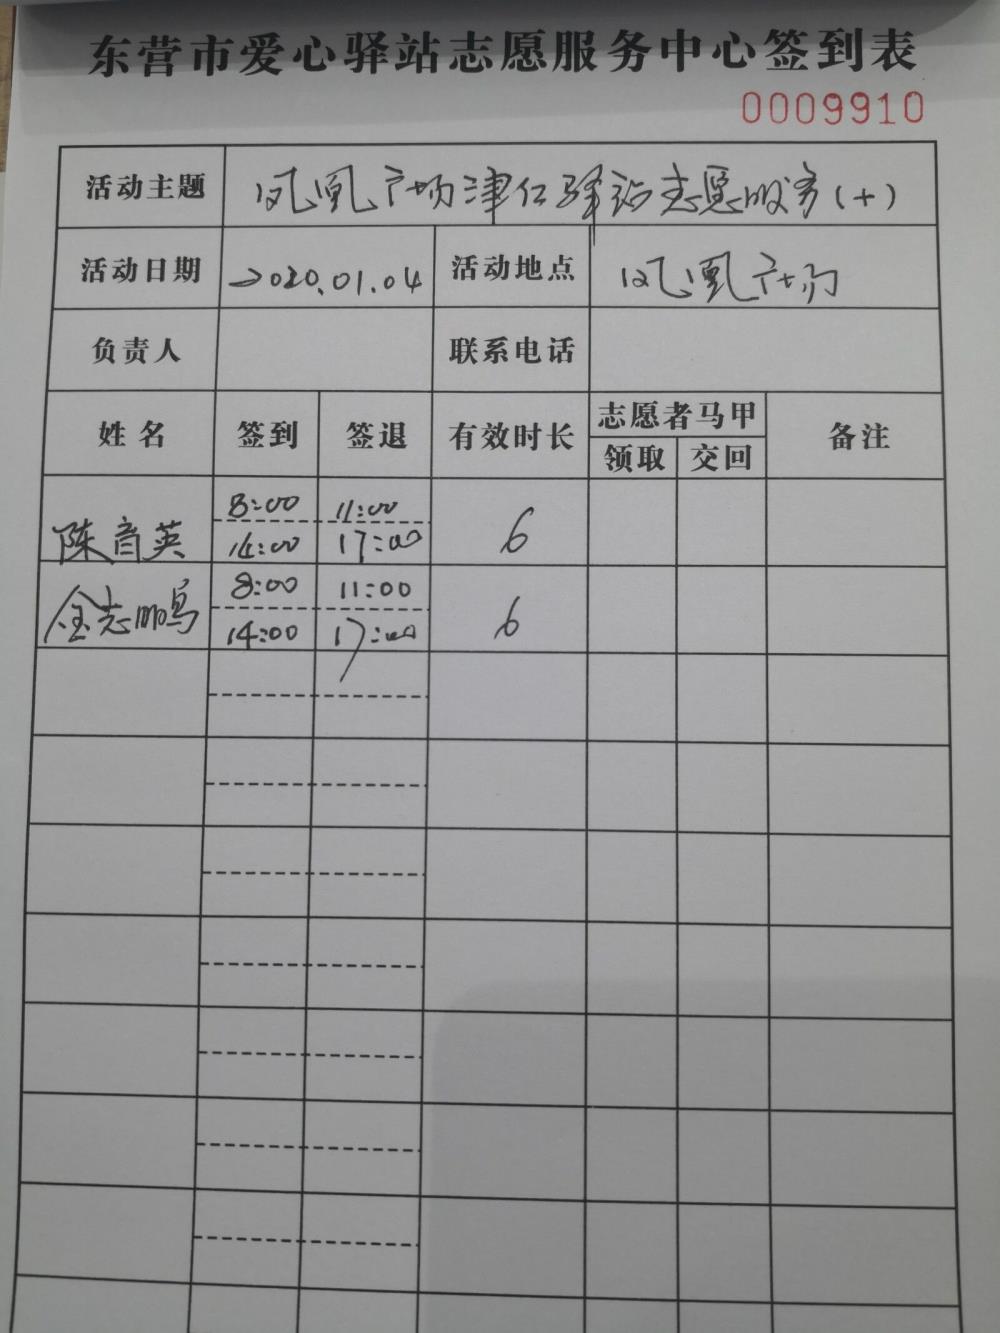 东营市爱心驿站志愿服务中心签到表
0009910
活动主题 凤凰广场津仁驿站志愿服务(十)
活动日期 2020.01.04 活动地点 凤凰广场
负责人 联系电话
姓名 签到 签退 有效时长 志愿者马甲 备注
领取 交回
陈音英 8:00 11:00 6
14:00 17:00
金志鹏 8:00 11:00 6
14:00 17:00